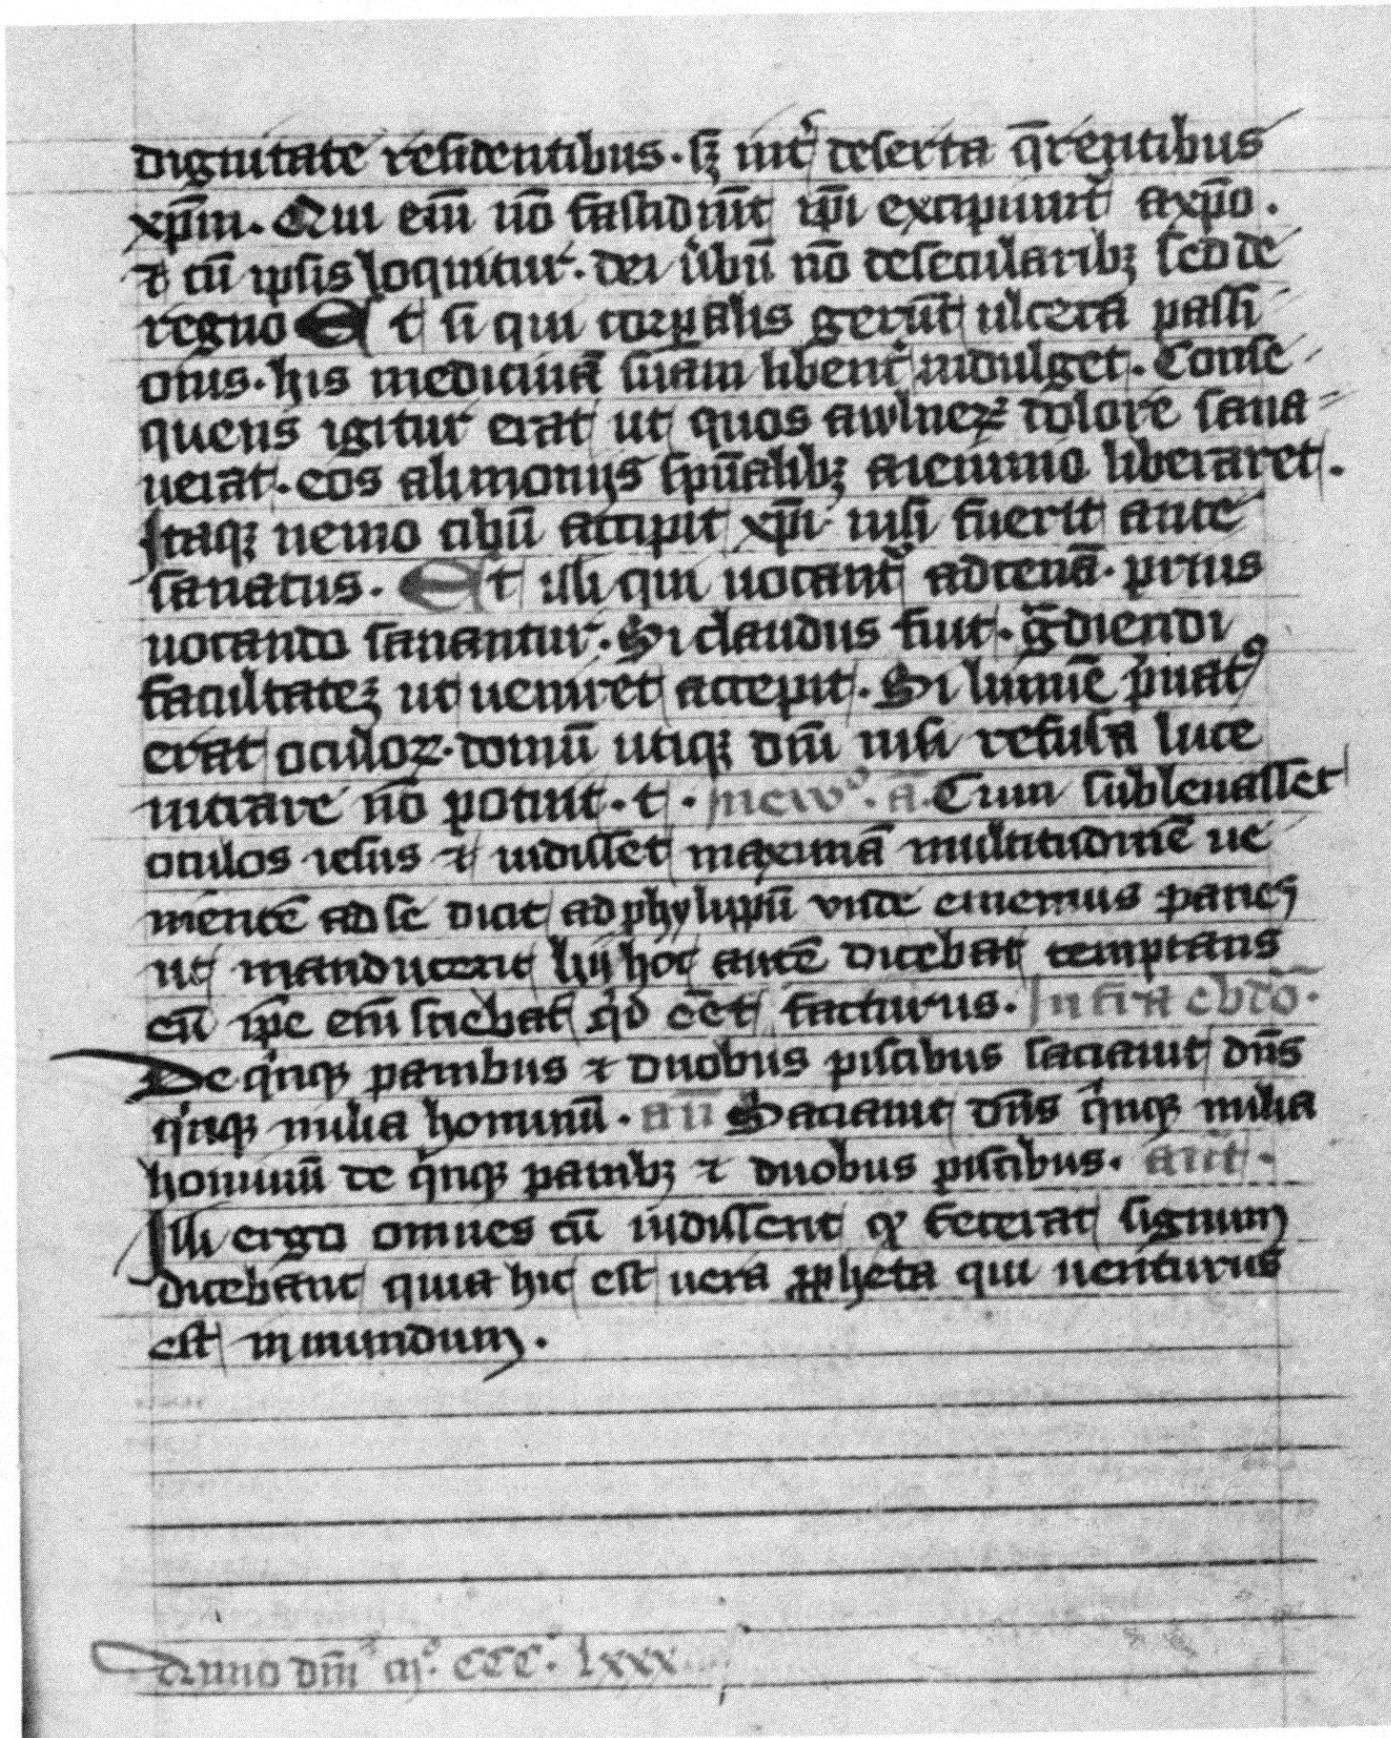 dignitate residentibus. sꝫ int᷑ deserta q̄rentibus
xp̄m. Qui em̄ nō fastidiūt ip̄i excipiunt᷑ axp̄o.
⁊ cū ipsis loquitur. dei ũbū nō desecularibꝫ sed de
regno Et si qui corꝑalis gerūt ulcera passi
onis. his medicinā suam libent᷑ indulget. Conse
quens igitur erat ut quos awlneꝝ dolore sana
uerat. eos alimoniis sp̄ualibꝫ aieiunio liberaret.
Itaqꝫ nemo cibū accipit xp̄i nisi fuerit ante
sanatus. Et illi qui uocant᷑ adcenā. prius
uocando sanantur. Si claudus fuit. gᷓdiendi
facultateꝫ ut ueniret accepit. Si lumine pͥuatꝰ
erat oculoꝝ. domū utiqꝫ dn̄i nisi refusa luce
intrare nō potuit. t. In ewº. a̅. Cum subleuasset
oculos iesus ⁊ uidisset maximā multitudinē ue
mentē ad se dicit ad phylippū vnde ememus panes
ut manducent hij hoc autē dicebat temptans
eū ip̄e em̄ sciebat qͥd eēt facturus. Infra ebdo̅.
De qͥnqꝫ panibus ⁊ duobus piscibus saciauit dn̄s
qͥnqꝫ milia hominū. an̄ Saciauit dn̄s qͥnqꝫ milia
hominū de qͥnqꝫ panibꝫ ⁊ duobus piscibus. ant̄.
Illi ergo omnes cū uidissent ꝙ fecerat signum
dicebant quia hic est uera ꝓpheta qui uenturus
est inmundum.
Anno dn̄i mº. CCCº. lxxx